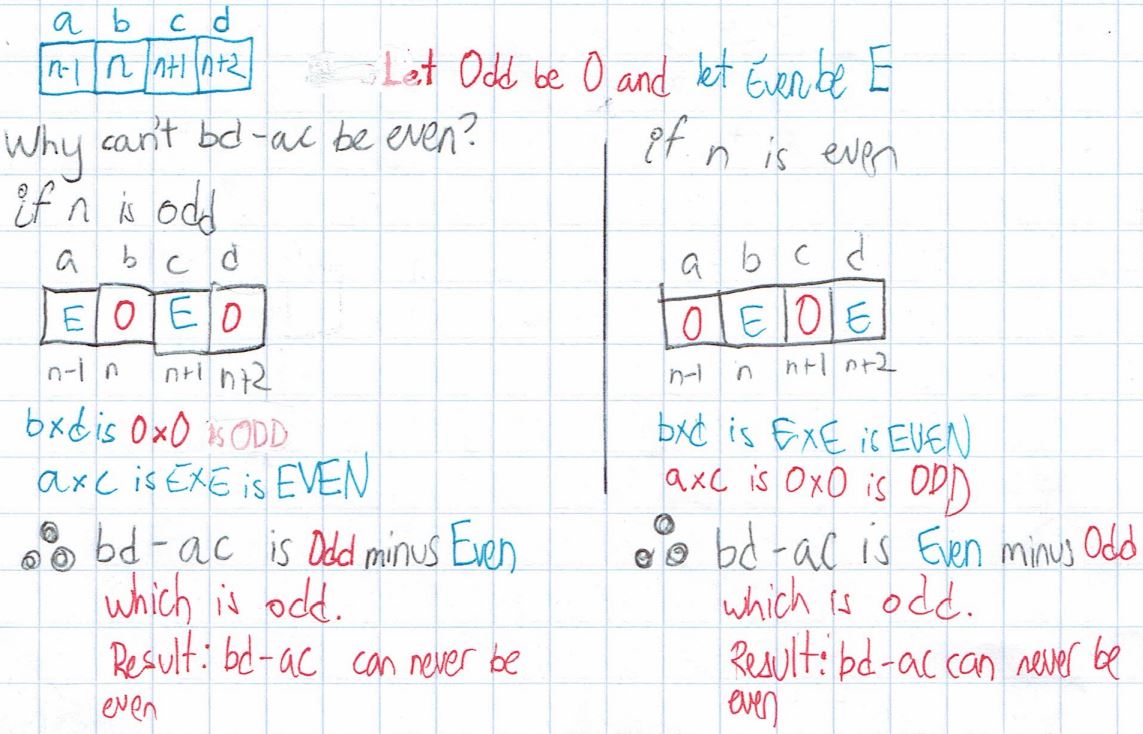 a b c d
n-1 n n+1 n+2
Let Odd be O and let Even be E
Why can't bd-ac be even?
if n is odd
a b c d
E O E O
n-1 n n+1 n+2
b×d is O×O is ODD
a×c is E×E is EVEN
∴ bd-ac is Odd minus Even
which is odd.
Result: bd-ac can never be
even
if n is even
a b c d
O E O E
n-1 n n+1 n+2
b×d is E×E is EVEN
a×c is O×O is ODD
∴ bd-ac is Even minus Odd
which is odd.
Result: bd-ac can never be
even